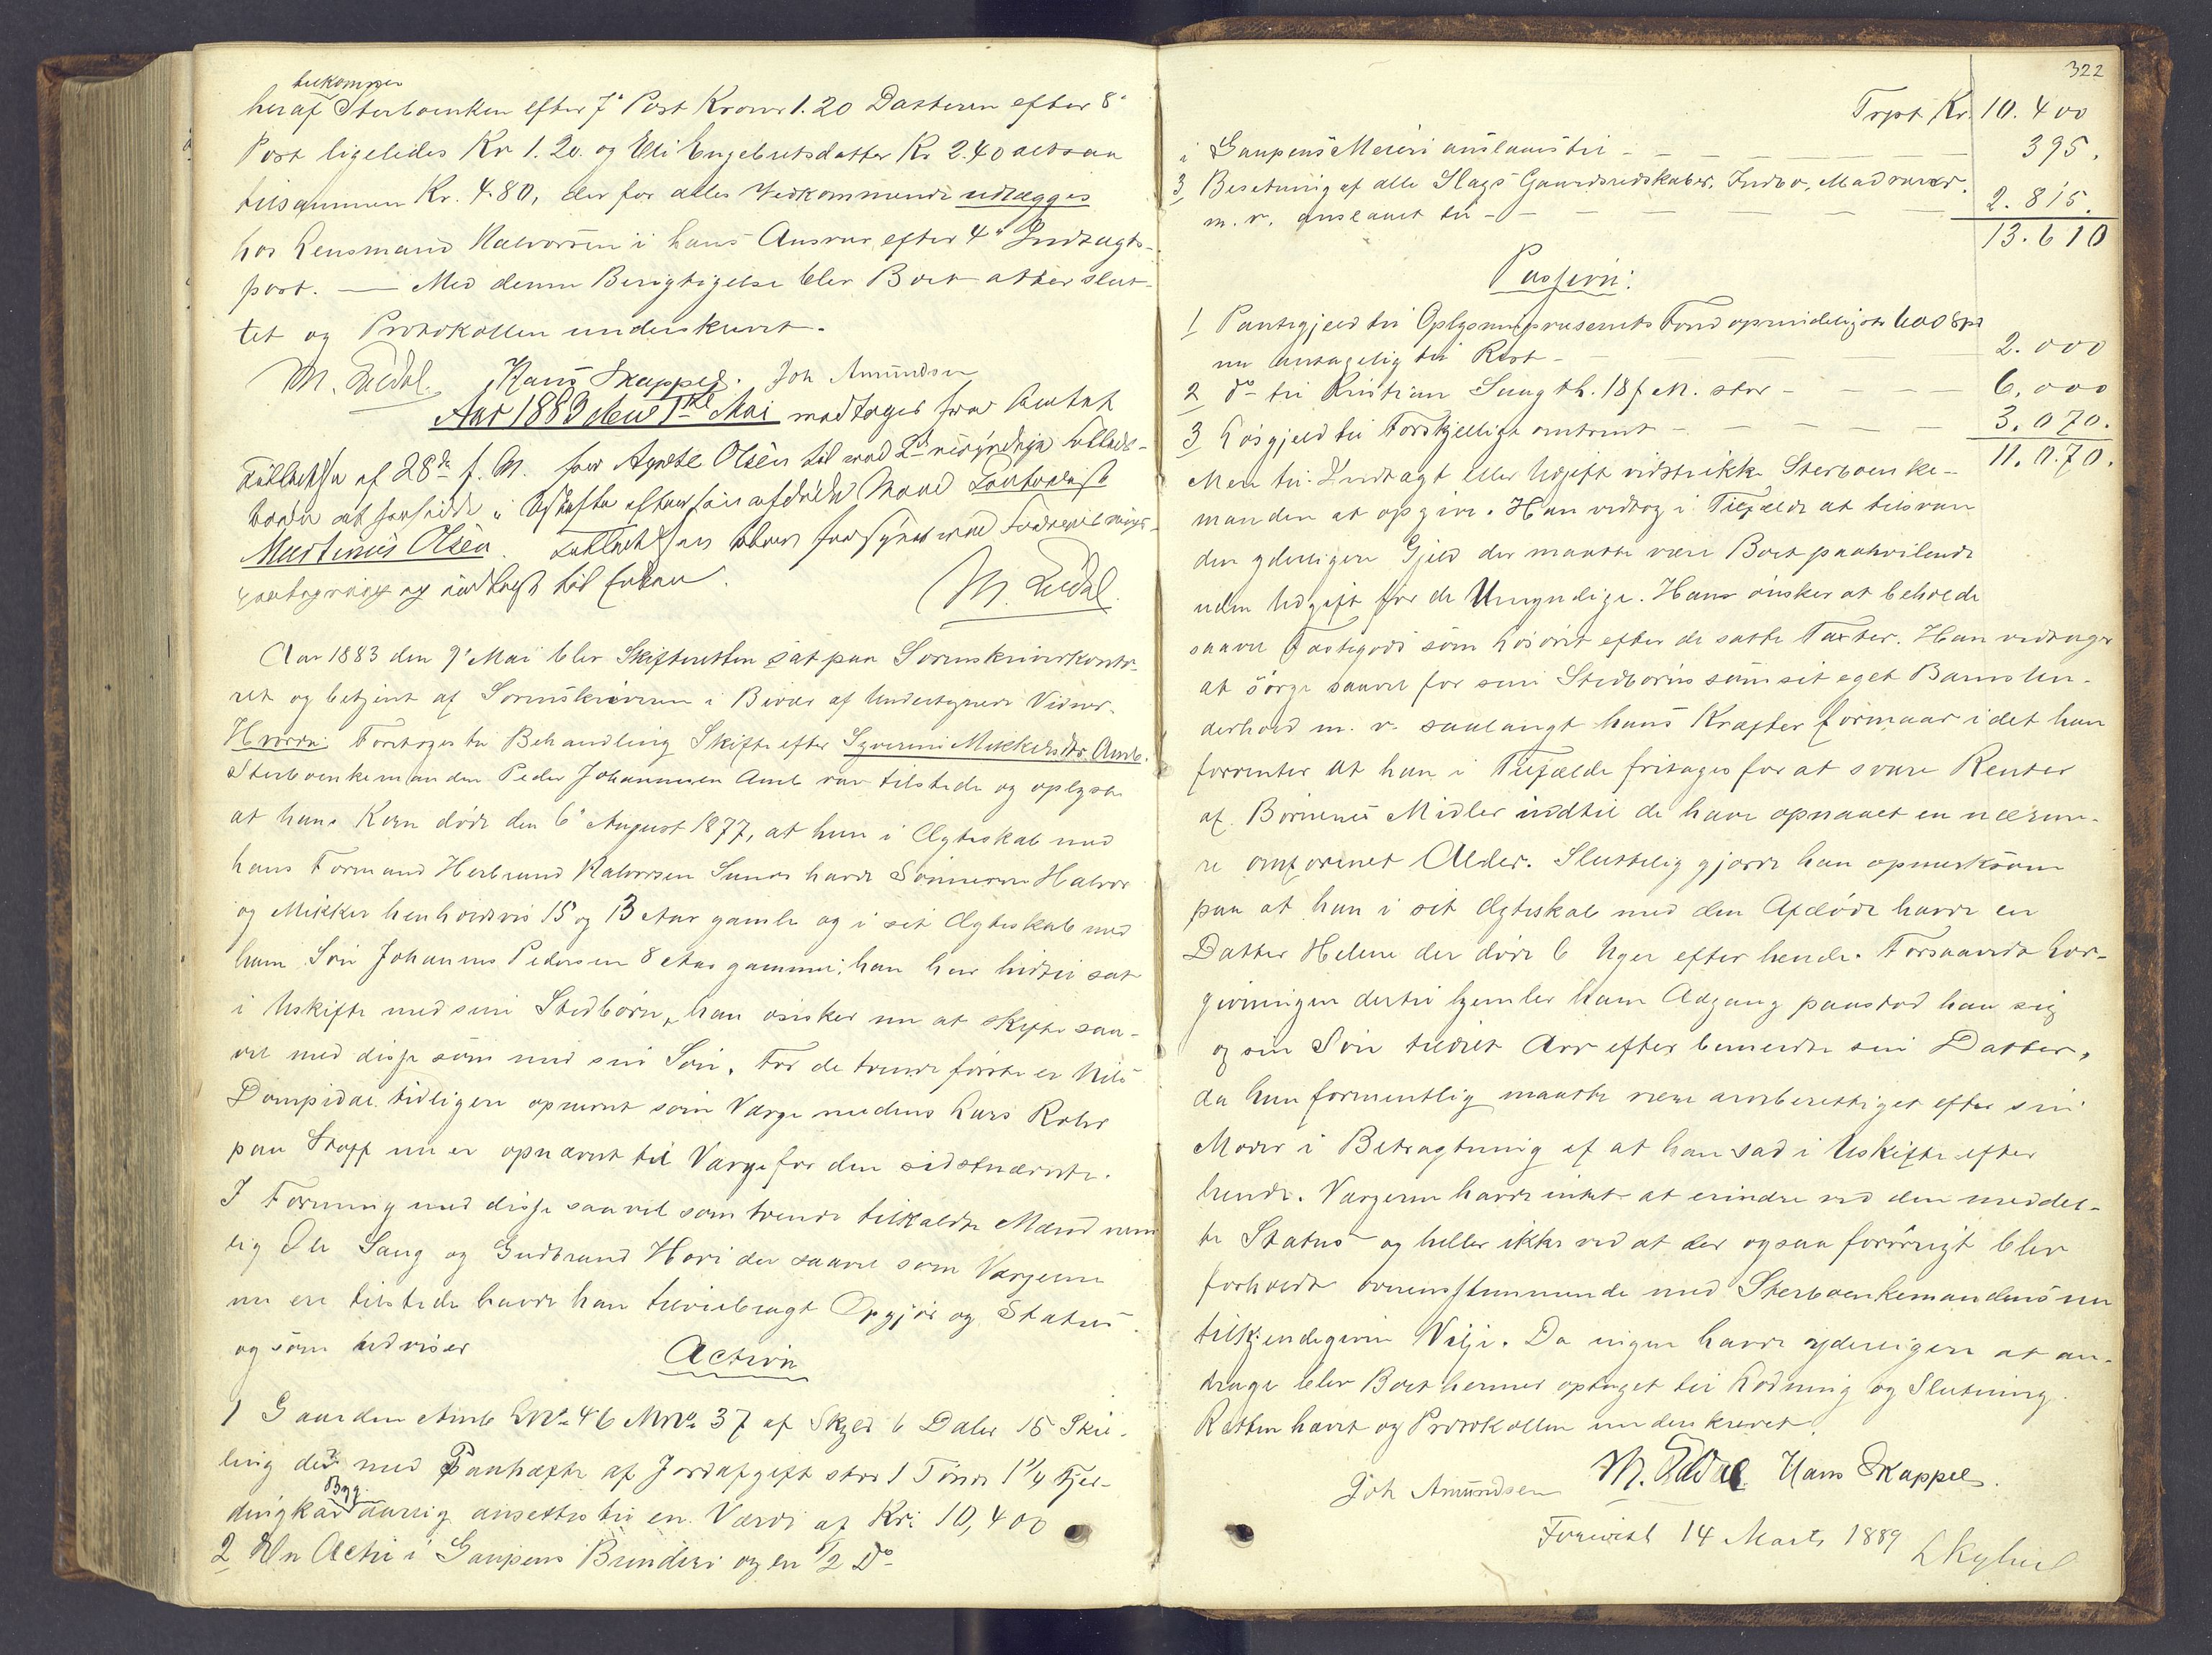 tilkommer
heraf Sterboenken efter 7de Post Kroner 1.20 Datteren efter 8de
Post ligeledes Kr 1.20. og Eli Engebretsdatter Kr 2.40 altsaa
tilsammen Kr. 4.80, der for alles Vedkommende udlægges
hos Lensmand Halvorsen i hans Ansvar efter 4de Indtægts-
post. — Med denne Berigtigelse blev Boet atter slut-
tet og Protokollen underskrevet.
Hans Skappel. Joh Amundsen
Aar 1883 den 1ste Mai modtoges fra Amtet
af 28de f. M. for Agnete Olsen til med 2de umyndige Fælleds-
børn at forblive i Uskifte efter sin afdøde Mand
Martinus Olsen.
og indtagt til Enken.
Aar 1883 den 9de Mai blev Skifteretten sat paa Sorenskriverkonto-
ret og betjent af Sorenskriveren i Bivær af Undertegnede Vidner.
Hvorda: Foretoges til Behandling Skifte efter Syverine Mikkelsdtr. Aml.
Sterboenkemanden Peder Johannesen Aml var tilstede og oplyste
at hans Kone døde den 6te August 1877, at hun i Ægteskab med
hans Formand Herbrand Halvorsen Sund havde Sønnerne Halvor
og Mikkel henholdsvis 15 og 13 Aar gamle og i sit Ægteskab med
ham Søn Johannes Pedersen 8 Aar gammel; han har hidtil sat
i Uskifte med sine Stedbørn, han ønsker nu at skifte saa-
vel med disse som med sin Søn. For de tvende første er Nils
Dompidal tidligere opnævnt som Værge medens Lars Rolis
paa Stoff nu er opnævnt til Værge for den sidstnævnte.
I Forening med disse saavel som tvende tilkaldte Mænd nem-
lig Ole Saug og Gudbrand Hovi der saavel som Vergerne
nu ere tilstede havde han tilveiebragt Opgjør og Status
og som udviser
Activa
1 Gaarden Aml LNo 46 MNo 37 af Skyld 6 Daler 15 Skil-
ling der med Paahæfte af Jordafgift stor 1 Tønde 1 1/4 Fjer-
Byg
dingkar aarlig ansattes til en Værdi af Kr: 10,400
2 En Actie i Gaupens Brænderi og en 1/2 Do
322
Trpt Kr. 10.400
i Gaupens Meieri anslaaes til — 395.
3 Besætning af alle Slags Gaardsredskaber, Indbo, Madvarer.
m. v. anslaaet til — 2.815.
13.610
Passiva:
1 Pantegjeld til Oplysningsvæsenets Fond oprindeligst 600 Spd
nu antagelig til Rest — 2.000
2 do til Kristian Saug th. 18 f M. stor — 6,000
3 Løsgjeld til Forskjellige omtrent — 3.070.
11.070.
Mere til Indtægt eller Udgift vidste ikke Sterboenke-
manden at opgive. Han vedtog i Tilfælde at tilsvare
den yderligere Gjeld der maatte være Boet paahvilende
uden Udgift for de Umyndige. Han ønsker at beholde
saavel Fastegods som Løsøret efter de satte Taxter. Han vedtager
at sørge saavel for sine Stedbørns som sit eget Barns Un-
derhold m. v. saalangt hans Kræfter formaar idet han
forventer at han i Tilfælde fritages for at svare Renter
af Børnenes Midler indtil de have opnaaet en nærme-
re omforenet Alder. Sluttelig gjorde han opmerksom
paa at han i sit Ægteskab med den Afdøde havde en
Datter Helene der døde 6 Uger efter hende. Forsaavidt Lov-
givningen dertil hjemler ham Adgang paastod han sig
og sin Søn tildelt Arv efter bemeldte sin Datter,
da hun formentlig maatte være arveberettiget efter sin
Moder i Betragtning af at han sad i Uskifte efter
hende. Vergerne havde intet at erindre ved den meddel-
te Status og heller ikke ved at der ogsaa forøvrigt blev
forholdt overensstemmende med Sterboenkemandens nu
tilkjendegivne Vilje. Da ingen havde yderligere at an-
drage blev Boet hermed optaget til Lodning og Slutning.
Retten hævet og Protokollen underskrevet.
Joh Amundsen Hans Skappel.
Foreviist 14 Marts 1889